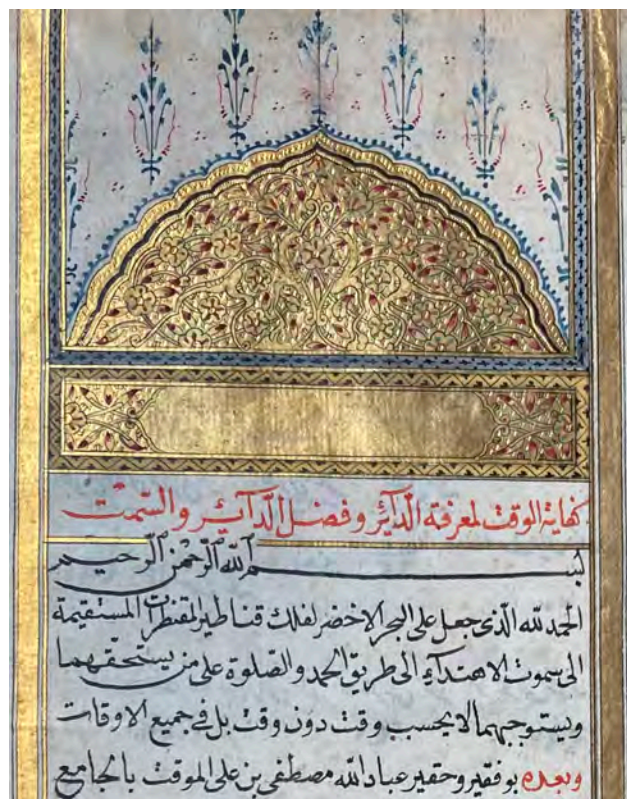 كفاية الوقت لمعرفة الدآئر وفضل الدآئر والسمت
بسم الله الرحمن الرحيم
الحمد لله الذى جعل على البحر الاخضر لفلك قناطير المقنطرات المستقيمة
الى سموت الاهتدآء الى طريق الحمد والصلوة على من يستحقهما
ويستوجبهما لا بحسب وقت دون وقت بل فى جميع الاوقات
وبعده بو فقير وحقير عباد الله مصطفى بن على الموقت بالجامع